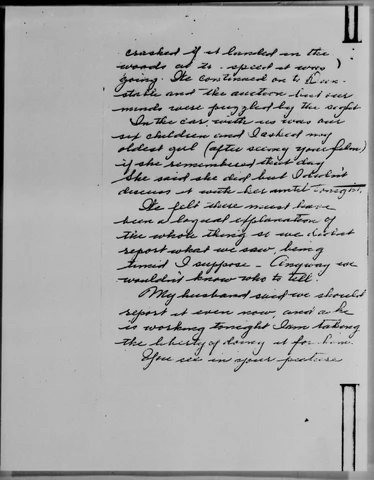 crashed if it landed in the
woods at the speed it was
going. We continued on to
and the auction but our
minds were puzzled by the sight.
In the car with us was our
six children and I asked my
oldest girl (after seeing your film)
if she remembered that day
She said she did but I didn't
discuss it with her until tonight.
We felt there must have
been a logical explanation of
the whole thing so we didnt
report what we saw, being
timid I suppose - Anyway we
wouldn't know who to tell.
My husband said we should
report it even now, and as he
is working tonight I am taking
the liberty of doing it for him.
You see in your